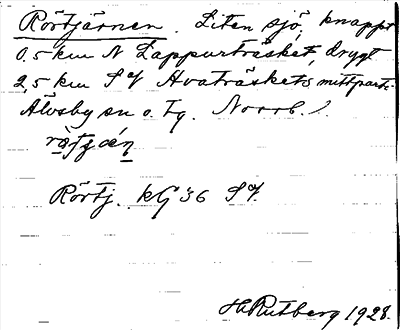 Rörtjärnen. Liten sjö, knappt
0,5 km N Lappurträsket, drygt
2,5 km SV Hvaträskets mittparti.
Älvsby sn o. tg. Norrb. l.
Rörtj. kG 36 SV.
H. Rutberg 1928.